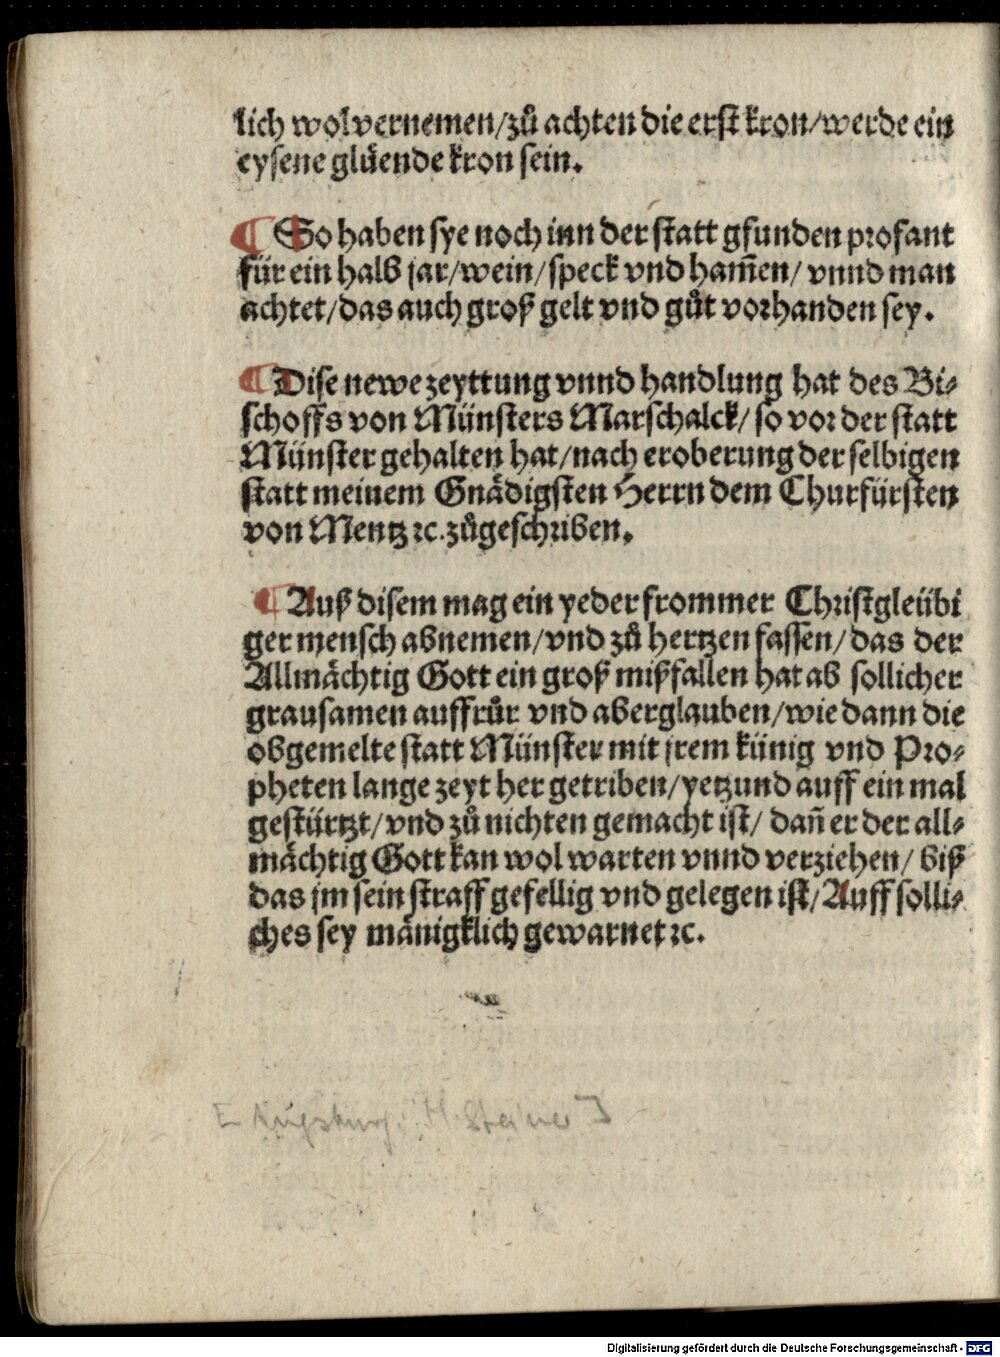 lich wol vernemen/zů achten die erst kron/werde ein
eysene glüende kron sein.
¶ So haben sye noch inn der statt gfunden profant
für ein halb jar/wein/speck vnd ham̃en/ vnnd man
achtet/das auch groß gelt vnd gůt vorhanden sey.
¶ Dise newe zeyttung vnnd handlung hat des Bi⸗
schoffs von Münsters Marschalck/ so vor der statt
Münster gehalten hat/nach eroberung der selbigen
statt meinem Gnädigsten Herrn dem Churfürsten
von Mentz ꝛc. zůgeschriben.
¶ Auß disem mag ein yeder frommer Christgleübi
ger mensch abnemen/vnd zů hertzen fassen/das der
Allmächtig Gott ein groß mißfallen hat ab sollicher
grausamen auffrůr vnd aberglauben/wie dann die
obgemelte statt Münster mit jrem künig vnd Pro⸗
pheten lange zeyt her getriben/yetzund auff ein mal
gestürtzt/vnd zů nichten gemacht ist/ dañ er der all⸗
mächtig Gott kan wol warten vnnd verziehen/ biß
das jm sein straff gefellig vnd gelegen ist/Auff solli⸗
ches sey mänigklich gewarnet ꝛc.
[Augsburg: H. Steiner]
Digitalisierung gefördert durch die Deutsche Forschungsgemeinschaft - DFG